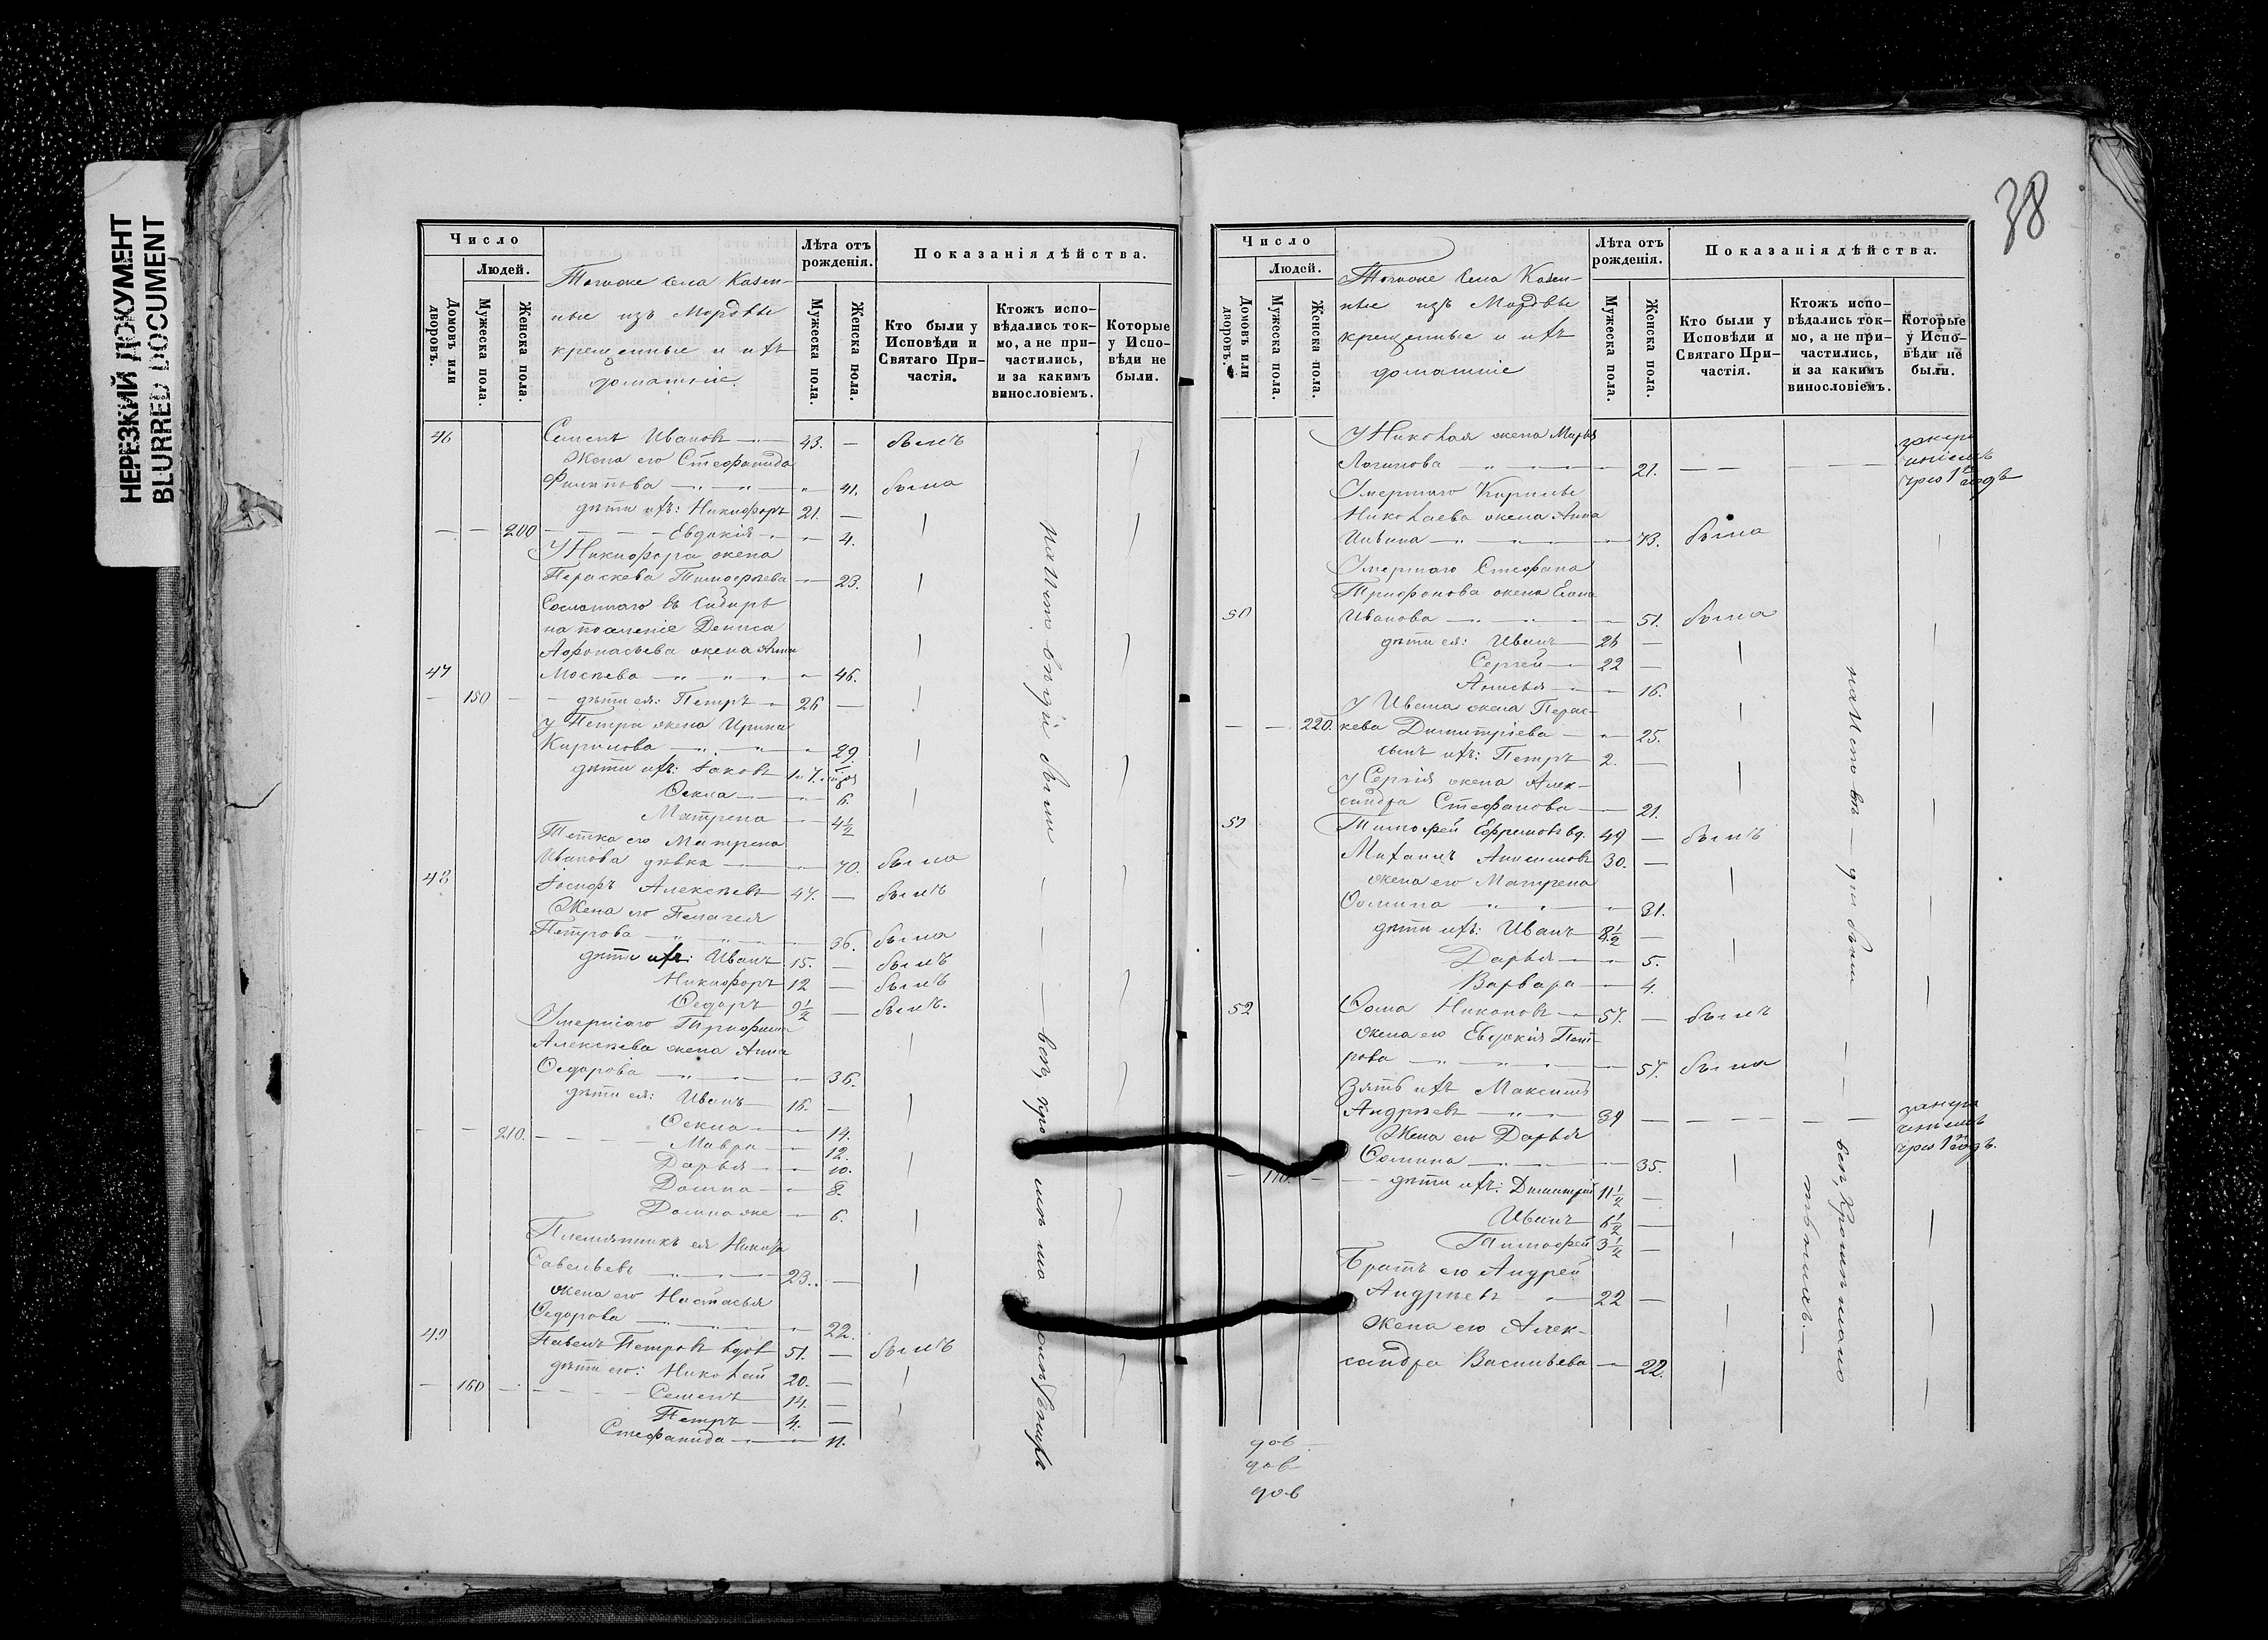 НЕРЕЗКИЙ ДОКУМЕНТ
BLURRED DOCUMENT
Число
Людей.
Домовъ или дворовъ.
Мужеска пола.
Женска пола.
Тогоже села Казен-
ные изъ Мордвы
крещенные и ихъ
домашніе.
Лѣта отъ рожденія.
Мужеска пола.
Женска пола.
Показанія дѣйства.
Кто были у Исповѣди и Святаго При-частія.
Ктожъ испо-вѣдались ток-мо, а не при-частились, и за какимъ винословіемъ.
Которые у Испо-вѣди не были.
46 Семенъ Ивановъ 43. — былъ
Жена его Стефанида
Филипова 41. была
дѣти ихъ: Никифоръ 21. —
200 Евдокія 4.
У Никифора жена
Параскева Тимофѣева 23.
Сосланнаго въ Сибирь
на поселеніе Дениса
Афонасьева жена Анна
47 Мосѣева 46.
150 дѣти ея: Петръ 26 —
У Петра жена Ирина
Кирилова 29.
дѣти ихъ: Іаковъ
Ѳекла 6.
Матрена 4½
Тетка его Матрена
Иванова дѣвка 70. была
48 Іосифъ Алексѣевъ 47. — былъ
Жена его Пелагея
Петрова 36. была
дѣти ихъ: Иванъ 15. — былъ
Никифоръ 12 — былъ
Ѳедоръ 9½ — былъ.
Умершаго Трифона
Алексѣева жена Анна
Ѳедорова 36.
дѣти ея: Иванъ 16. —
Ѳекла 14.
210. Мавра 12.
Дарья 10.
Домна 8.
Домна же 6.
Племянникъ ея Никита
Савельевъ 23. —
жена его Настасья
Ѳедорова 22.
49 Павелъ Петровъ вдов 51. — былъ
дѣти его: Николай 20. —
160 Семенъ 14. —
Петръ 4. —
Стефанида 11.
38
Число
Людей.
Домовъ или дворовъ.
Мужеска пола.
Женска пола.
Тогоже Села Казен-
ные изъ Мордвы
крещенные и ихъ
домашніе
Лѣта отъ рожденія.
Мужеска пола.
Женска пола.
Показанія дѣйства.
Кто были у Исповѣди и Святаго При-частія.
Ктожъ испо-вѣдались ток-мо, а не при-частились, и за какимъ винословіемъ.
Которые у Испо-вѣди не были.
У Николая жена Марья
Логинова 21.
Умершаго Кирилы
Николаева жена Анна
73. была
Умершаго Стефана
Трифонова жена Елена
50 Иванова 51. была
дѣти ея: Иванъ 26 —
Сергей 22 —
Анисья 16.
У Ивана жена Парас-
220. кева Димитріева 25.
сынъ ихъ: Петръ 2. —
У Сергія жена Алек-
сандра Стефанова 21.
51 Тимофей Ефремовъ вд. 49 — былъ
Михаилъ Анисимовъ 30. —
жена его Матрена
Ѳомина 31.
дѣти ихъ: Иванъ 8½ —
Дарья 5.
Варвара 4.
52 Ѳома Никоновъ 57. — былъ
жена его Евдокія Пет-
рова 57. была
Зять ихъ Максимъ
Андрѣевъ 39
Жена его Дарья
Ѳомина 35.
170. дѣти ихъ: Димитрій 11½ —
Иванъ 6½ —
Тимофей 3½ —
Братъ его Андрей
Андрѣевъ 22 —
Жена его Алек-
сандра Васильева 22.
дов
дов
дов